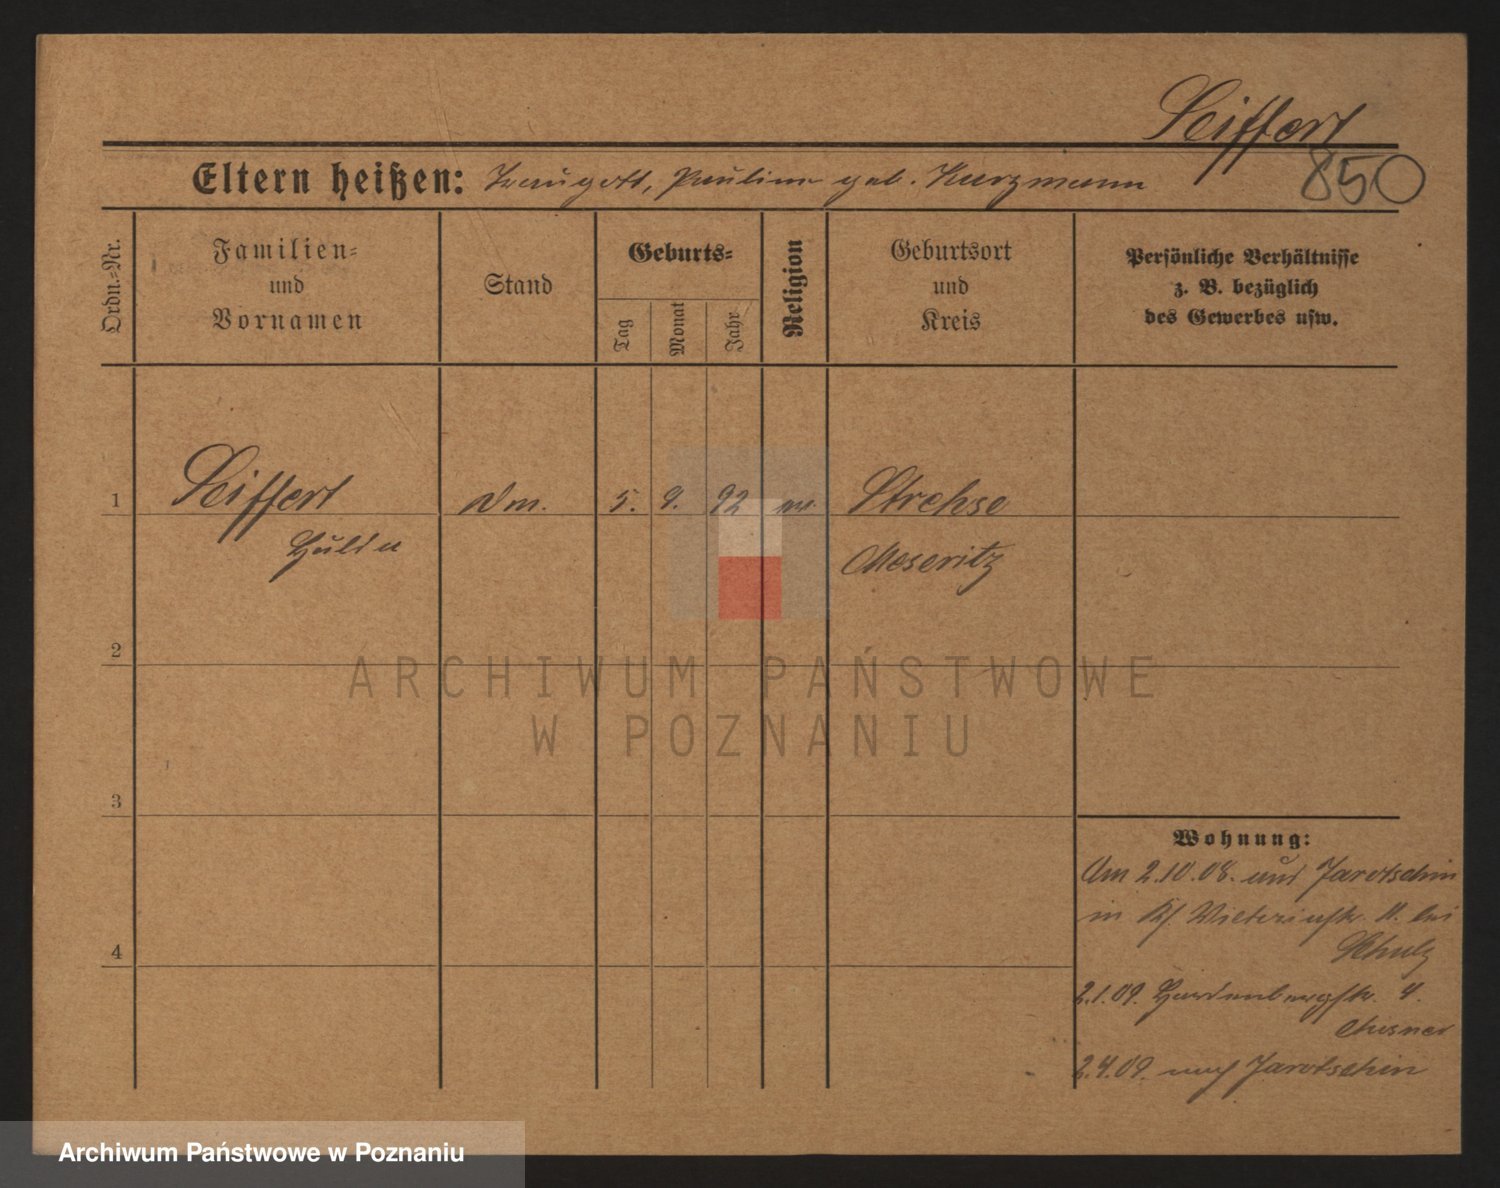 Seiffert
850
Eltern heißen: Traugott, Pauline geb. Kurzmann
Ordn.-Nr.
Familien-
und
Vornamen
Stand
Geburts-
Tag
Monat
Jahr
Religion
Geburtsort
und
Kreis
Persönliche Verhältnisse
z. B. bezüglich
des Gewerbes usw.
1 Seiffert 5. 9. 92 Strehse
Hulda Meseritz
2
3
4
Wohnung:
Am 2.10.08. Jarotschin
in 11. bei
Schulz
2.1.09. Hardenbergstr. 4.
2.4.09. nach Jarotschin
ARCHIWUM PAŃSTWOWE
W POZNANIU
Archiwum Państwowe w Poznaniu